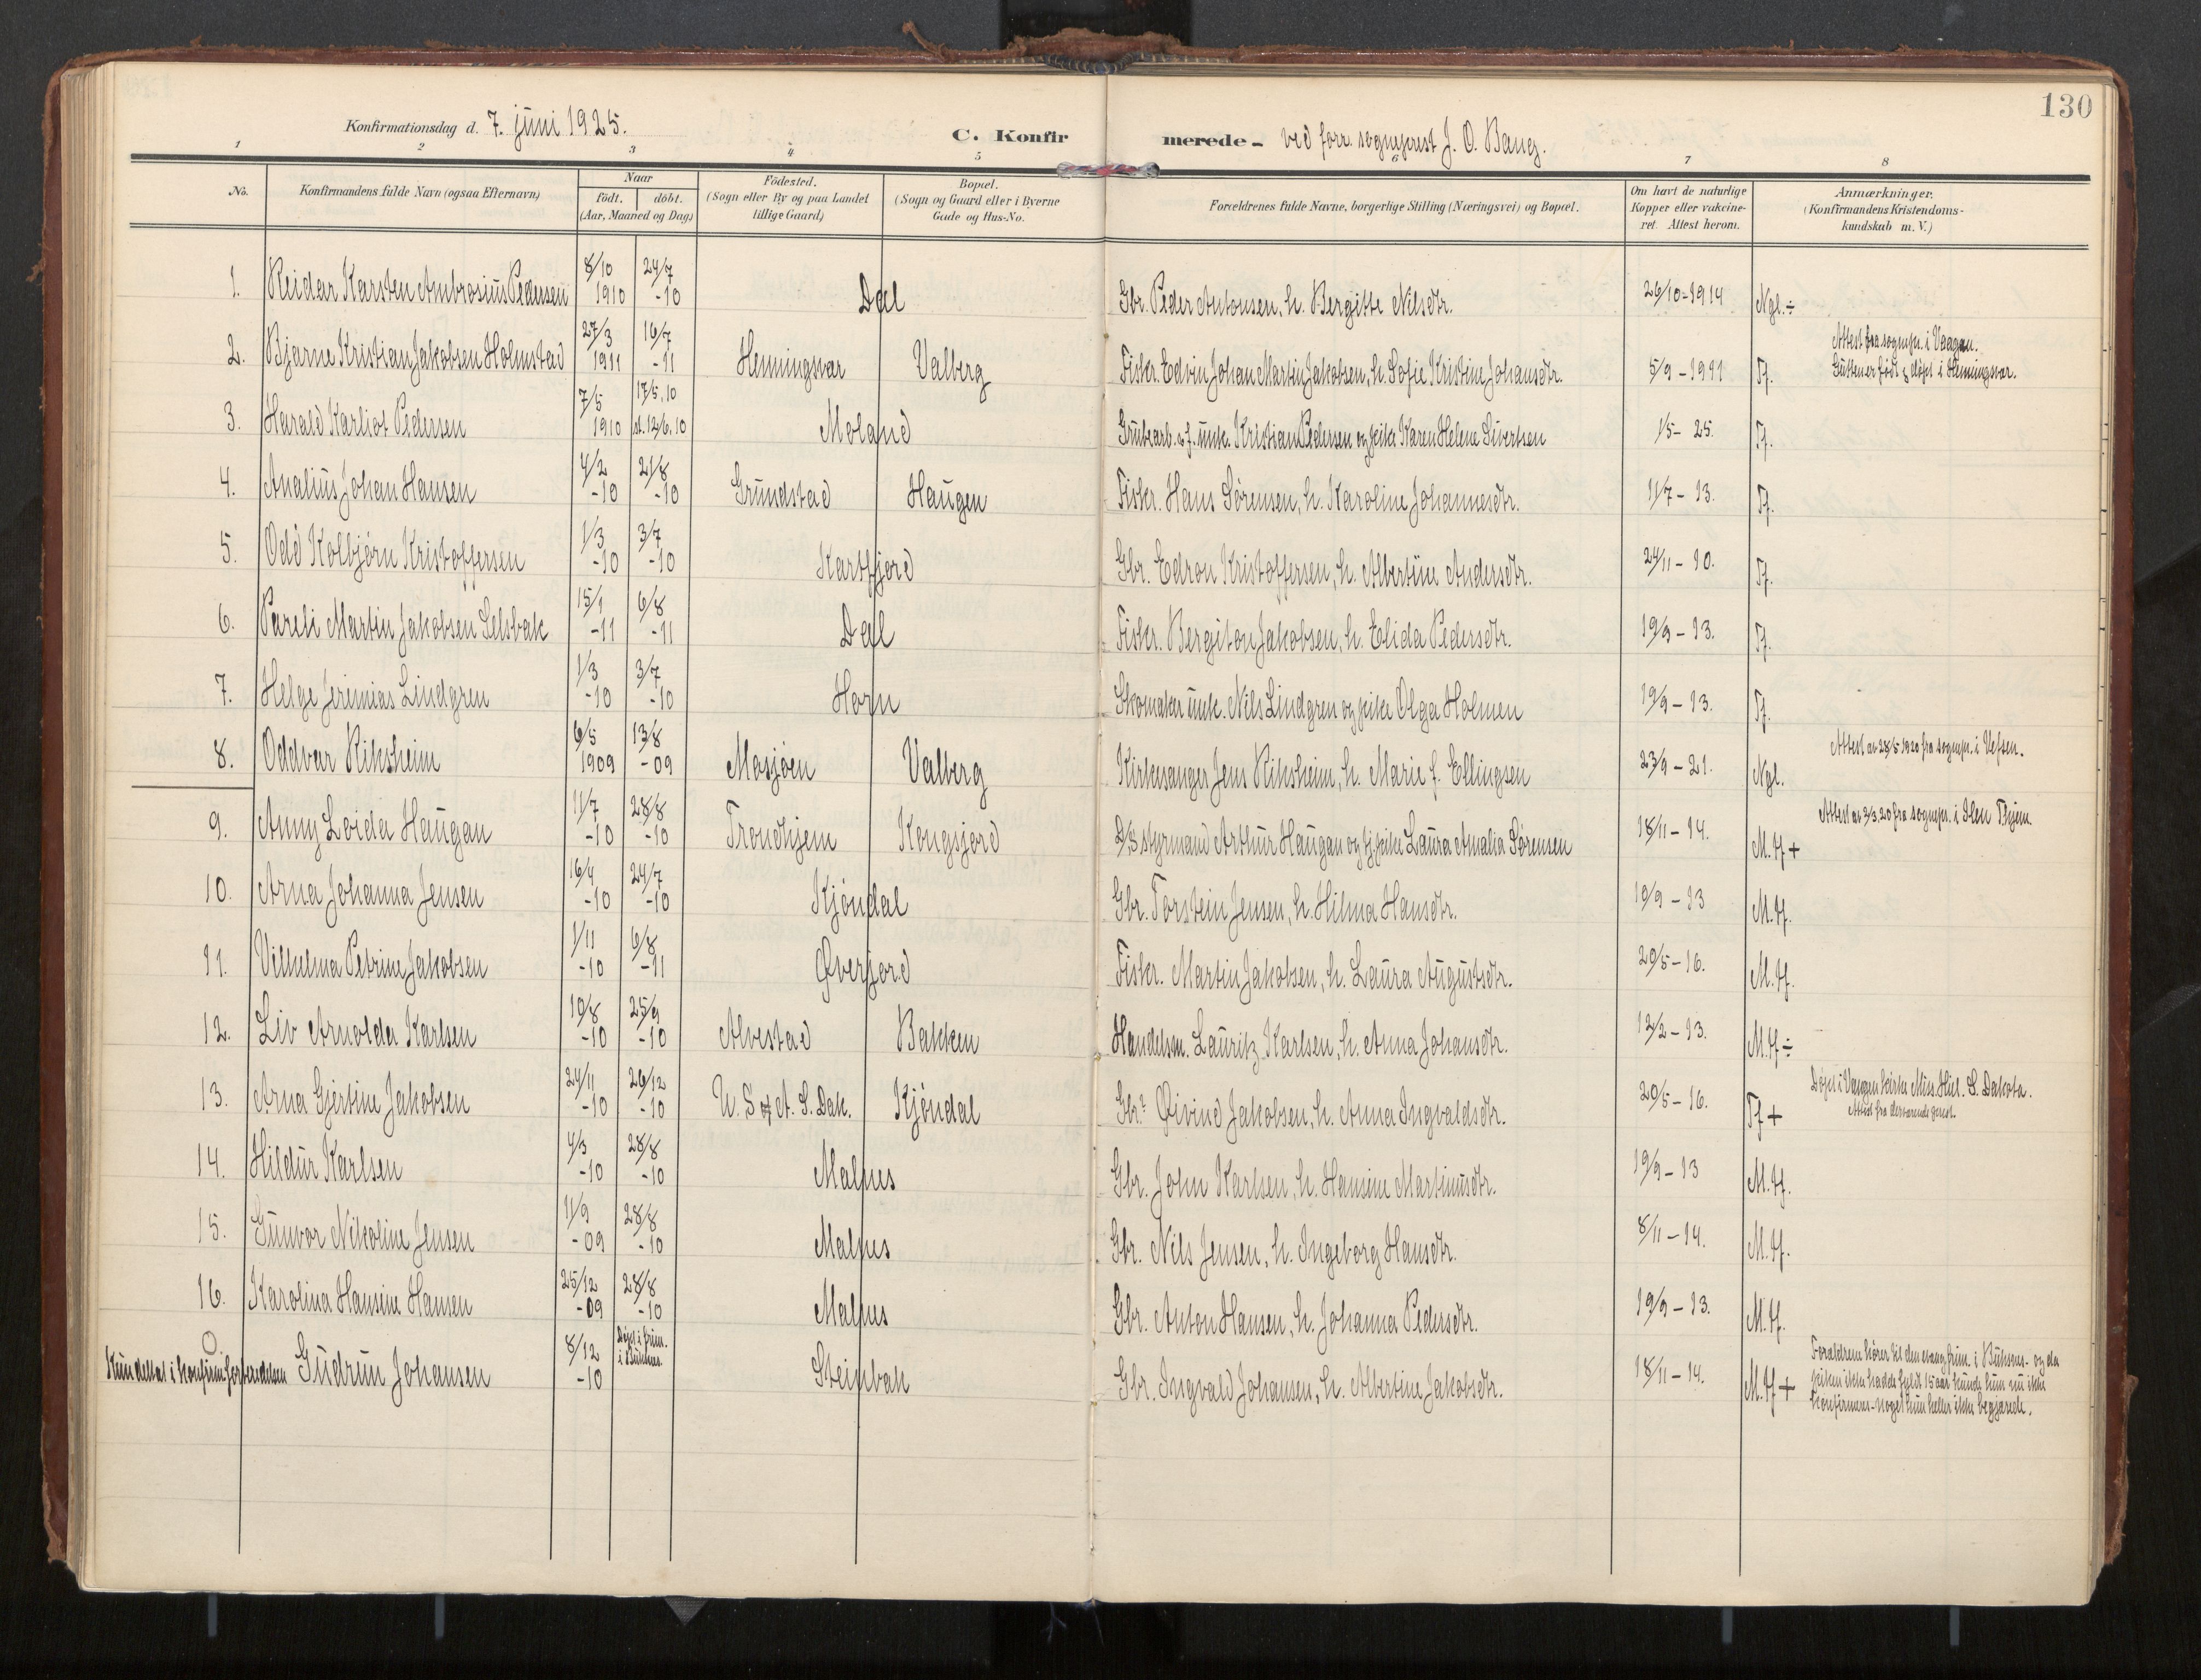 130
Konfirmationsdag d. 7. juni 1925. C. Konfirmerede - ved forr. sogneprest J. O. Bang.
1 2 3 4 5 6 7 8
No. Konfirmandens fulde Navn (ogsaa Efternavn) Naar födt. döbt. (Aar, Maaned og Dag) Födested. (Sogn eller By og paa Landet tillige Gaard) Bopæl. (Sogn og Gaard eller i Byerne Gade og Hus-No. Forældrenes fulde Navne, borgerlige Stilling (Næringsvei) og Bopæl. Om havt de naturlige Kopper eller vakcineret. Attest herom. Anmærkninger. (Konfirmandens Kristendomskundskab m. V.)
1. Reidar Karsten Ambrosius Pedersen 8/10 1910 24/7 -10 Dal Gbr. Peder Antonsen, h. Bergitte Nilsdtr. 26/10-1914 Ngl.÷
2. Bjarne Kristian Jakobsen Holmstad 27/3 1911 16/7 -11 Henningsvær Valberg Fisker. Edvin Johan Martin Jakobsen, h. Sofie Kristine Johansdtr. 5/9-1911 Tf. Attest fra sognepr. i Vaagan. Gutten er født & døpt i Henningsvær.
3. Harald Karliot Pedersen 7/5 1910 17/5.10 st. 12/6.10 Moland Grubearb. & f. unk. Kristian Pedersen og pike Karen Helene Sivertsen 1/5-25. Tf.
4. Analius Johan Hansen 4/2 -10 21/8 -10 Grundstad Haugen Fisker. Hans Sørensen, h. Karoline Johannesdtr. 11/7-13. Tf.
5. Odd Kolbjörn Kristoffersen 1/3 -10 3/7 -10 Kartfjord Gbr. Edron Kristoffersen, h. Albertine Andersdtr. 24/11-10. Tf.
6. Pareli Martin Jakobsen Selsbak 15/1 -11 6/8 -11 Dal Fisker. Bergiton Jakobsen, h. Elida Pedersdtr. 19/9-13. Tf.
7. Helge Jeremias Lindgren 1/3 -10 3/7 -10 Horn Skomaker unk. Nils Lindgren og pike Olga Holmen 19/9-13. Tf.
8. Oddvar Riksheim 6/5 1909 13/8 -09 Mosjøen Valberg Kirkesanger Jens Riksheim, h. Marie f. Ellingsen 23/9-21. Ngl. Attest av 28/5 1920 fra sognepr. i Vefsen.
9. Anny Loida Haugan 11/7 -10 28/8 -10 Trondhjem Kongsjord D/S styrmand Arthur Haugan og tj.pike Laura Amalia Sørensen 18/11-14. M.tf+ Attest av 3/3.20 fra sognepr. i Ilen Thjem.
10. Arna Johanna Jensen 16/4 -10 24/7 -10 Kjöndal Gbr. Torstein Jensen, h. Hilma Hansdtr. 19/9-13 M.tf.
11. Vilhelma Petrine Jakobsen 1/11 -10 6/8 -11 Øverjord Fisker. Martin Jakobsen, h. Laura Augustsdtr. 20/5-16. M.tf.
12. Liv Arnolda Karlsen 19/8 -10 25/9 -10 Alvestad Bakken Handelsm. Lauritz Karlsen, h. Anna Johansdtr. 12/2-13. M.tf÷
13. Arna Gjertine Jakobsen 24/11 -10 26/12 -10 U. S of A. S. Dak. Kjöndal Gbr. Øivind Jakobsen, h. Anna Ingvaldsdtr. 20/5-16. Tf+ Døpt i Vangen kirke Miss. Hill. S. Dakota. Attest fra derværende prest.
14. Hildur Karlsen 4/3 -10 28/8 -10 Malnes Gbr. John Karlsen, h. Hansine Martinusdtr. 19/9-13 M.tf.
15. Gunvor Nikoline Jensen 11/9 -09 28/8 -10 Malnes Gbr. Nils Jensen, h. Ingeborg Hansdtr. 8/11-14. M.tf.
16. Karolina Hansine Hansen 25/12 -09 28/8 -10 Malnes Gbr. Anton Hansen, h. Johanna Pedersdtr. 19/9-13. M.tf.
O. Kun deltat i konfirm.forberedelsen Gudrun Johansen 8/12 -10 Døpt i frim. i Buksnes. Steinbak Gbr. Ingvald Johansen, h. Albertine Jakobsdtr. 18/11-14. M.tf+ Forældrene hører til den evang. frim. i Buksnes- og da piken ikke hadde fyldt 15 aar kunde hun nu ikke konfirmeres- noget hun heller ikke begjærede.